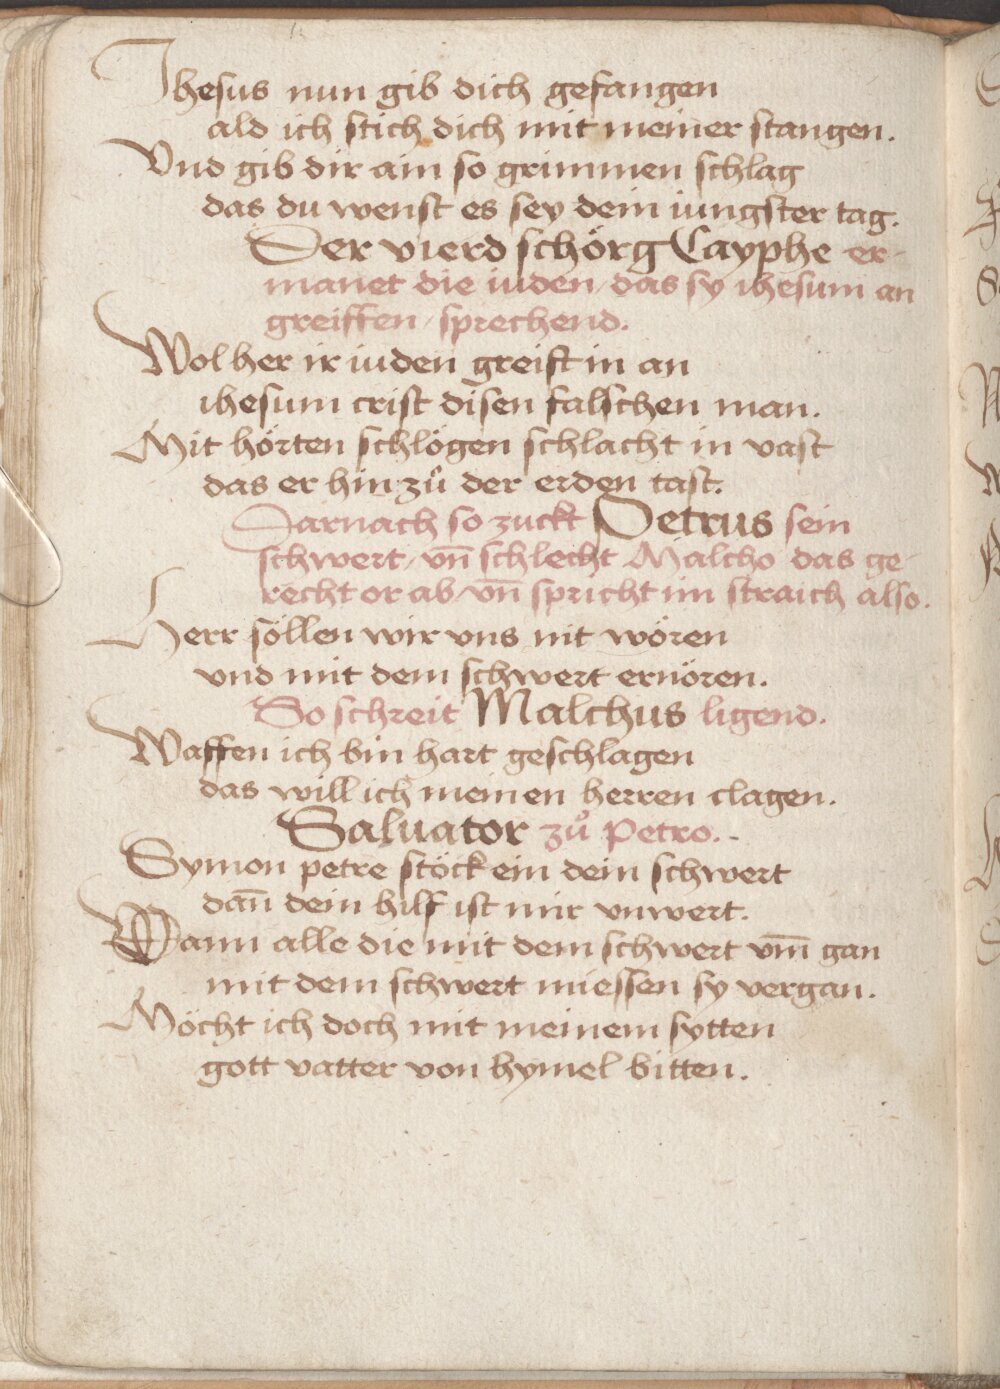 Jhesus nun gib dich gefangen
ald ich stich dich mit meiner stangen.
Vnd gib dir ain so grimmen schlag
das du wenst es sey dein iungster tag.
Der vierd schörg Cayphe er-
manet die iuden / das sy ihesum an
greiffen / sprechend.
Wol her ir iuden greift in an
ihesum crist disen falschen man.
Mit hörten schlögen schlacht in vast
das er hin zů der erden tast.
Darnach so zuckt Petrus sein
schwert / vn̄ schlecht Malcho das ge-
recht or ab / vn̄ spricht im straich also.
Herr söllen wir vns nit wören
vnd mit dem schwert ernören.
So schreit Malchus ligend.
Waffen ich bin hart geschlagen
das will ich meinen herren clagen.
Saluator zů Petro.-
Symon petre stöck ein dein schwert
dan̄ dein hilf ist mir vnwert.
Wann alle die mit dem schwert vm̄ gan
mit dem schwert miessen sy vergan.
Möcht ich doch mit meinem sytten
gott vatter von hymel bitten.